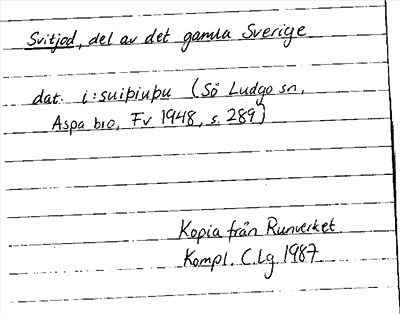 Svitjod, del av det gamla Sverige
dat. i:suiþiuþu (Sö Ludgo sn,
Aspa bro, Fv 1948, s. 289)
Kopia från Runverket
Kompl. C.Lg 1987